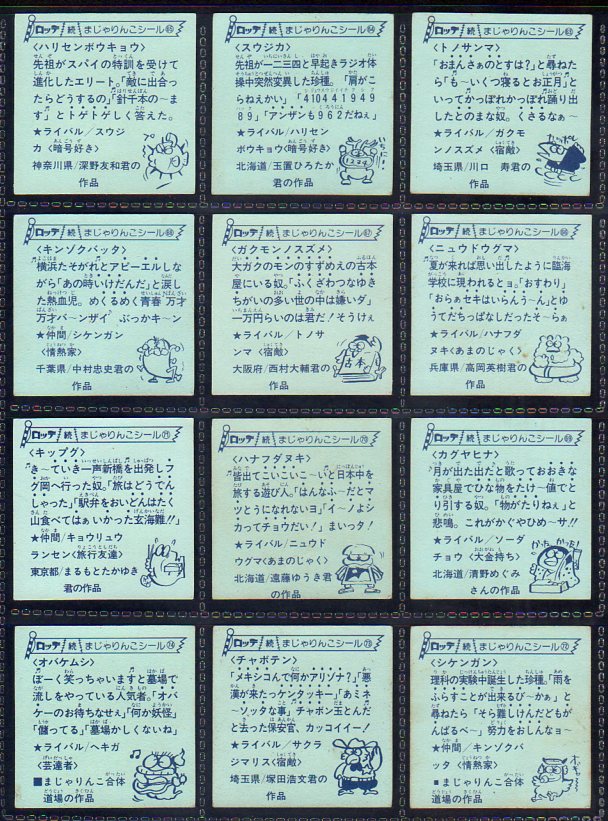 ロッテ 続 まじゃりんこシール 65
〈ハリセンボウキョウ〉
先祖がスパイの特訓を受けて
進化したエリート。「敵に出合っ
たらどうするの」「針千本の〜ま
す」とトゲトゲしく答えた。
★ライバル/スウジ
カ〈暗号好き〉
神奈川県/深野友和君の
作品
ロッテ 続 まじゃりんこシール 64
〈スウジカ〉
先祖が一二三四と早起きラジオ体
操中突然変異した珍種。「肩がこ
らねえかい」「410441949
89」「アンザンも962だねぇ」
★ライバル/ハリセン
ボウキョウ〈暗号好き〉
北海道/玉置ひろたか
君の作品
いちにー
ロッテ 続 まじゃりんこシール 63
〈トノサンマ〉
「おまんさぁのとすは?」と尋ねた
ら「も〜いくつ寝るとお正月」と
いってかっぽれかっぽれ踊り出
したとのまな奴。くさるなぁ〜
★ライバル/ガクモ
ンノスズメ〈宿敵〉
埼玉県/川口 寿君の
作品
ロッテ 続 まじゃりんこシール 68
〈キンゾクバッタ〉
横浜たそがれとアピーエルしな
がら「あの時いけだんだ」と涙し
た熱血児。めくるめく青春 万才
万才バ〜ンザイ ぶっかキ〜ン
★仲間/シケンガン
〈情熱家〉
千葉県/中村忠史君の
作品
ロッテ 続 まじゃりんこシール 67
〈ガクモンノスズメ〉
大ガクのモンのすずめえの古本
屋にいる奴。「ふくざわつなゆき
ちがいの多い世の中は嫌いダ」
一万円らいのは君だ!そうけぇ
★ライバル/トノサ
ンマ〈宿敵〉
大阪府/西村大輔君の
作品
古本
ロッテ 続 まじゃりんこシール 66
〈ニュウドウグマ〉
夏が来れば思い出したように臨海
学校に現われるとョ。「おすわり」
「おらぁセキはいらんう〜ん」とゆ
うてだちっぱなしだったそ〜らぁ
★ライバル/ハナフダ
ヌキ〈あまのじゃく〉
兵庫県/高岡英樹君の
作品
ロッテ 続 まじゃりんこシール 71
〈キップグ〉
き〜ていき一声新橋を出発しフ
グ岡へ行った奴。「旅はどうでん
しゃった」「駅弁をおいどんはたく
山食べてはぁいかった玄海難!!」
★仲間/キョウリュウ
ランセン〈旅行友達〉
東京都/まるもとたかゆき
君の作品
ロッテ 続 まじゃりんこシール 70
〈ハナフダヌキ〉
皆出てこいこいこ〜いと日本中を
旅する遊び人。「はんなふ〜だとマ
ツとうになれないヨ」「イ〜ノよシ
カってチョウだい!」まいッタ!
★ライバル/ニュウド
ウグマ〈あまのじゃく〉
北海道/遠藤ゆうき君
の作品
ロッテ 続 まじゃりんこシール 69
〈カグヤヒナ〉
月が出た出たと歌っておおきな
家具屋でひな物をたけ〜値でと
り引する奴。「物がたりねぇ」と
悲鳴。これがかぐやひめ〜サ!!
★ライバル/ソーダ
チョウ〈大金持ち〉
北海道/清野めぐみ
さんの作品
ロッテ 続 まじゃりんこシール 74
〈オバケムシ〉
ぼーく笑っちゃいますと墓場で
流しをやっている人気者。「オバ
ケーのお待ちなせぇ」「何か妖怪」
「儲ってる」「墓場かしくないね」
★ライバル/ヘキガ
〈芸達者〉
■まじゃりんこ合体
道場の作品
ロッテ 続 まじゃりんこシール 73
〈チャボテン〉
「メキシコんで何かアリゾナ?」「悪
漢が来たっケンタッキー」「あミネ
ソッタな事」チャボン玉とんだ
と去った保安官、カッコイイー!
★ライバル/サクラ
ジマリス〈宿敵〉
埼玉県/塚田浩文君の
作品
ロッテ 続 まじゃりんこシール 72
〈シケンガン〉
理科の実験中誕生した珍種。「雨を
ふらすことが出来るび〜かぁ」と
尋ねたら「そら難しけんだどもが
んばるべ〜」努力をおしんなョ〜
★仲間/キンゾクバ
ッタ〈情熱家〉
■まじゃりんこ合体
道場の作品